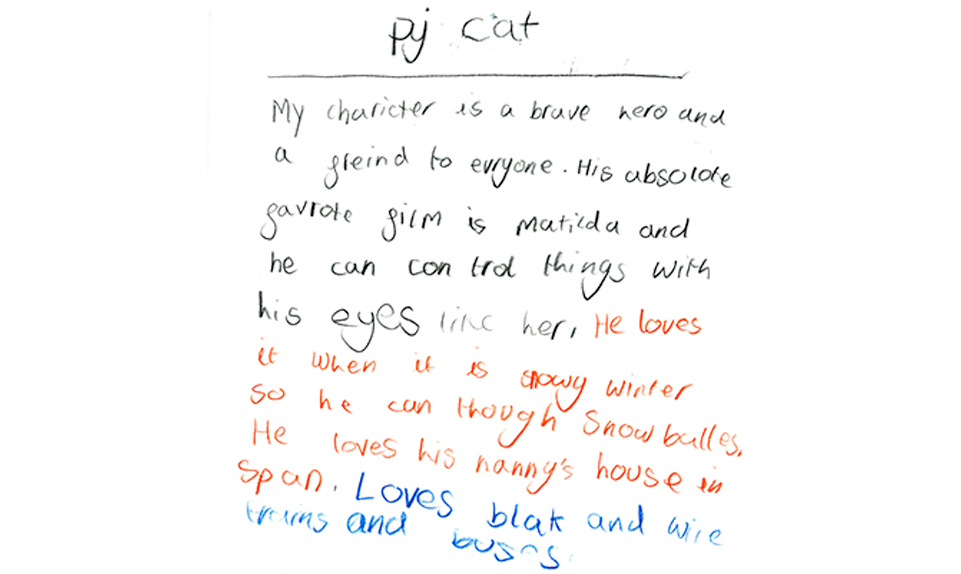 pj cat
My charicter is a brave hero and
a freind to evryone. His absolote
favrote film is Matilda and
he can control things with
his eyes like her, He loves
it when it is snowy winter
so he can though Snowballes.
He loves his nanny's house in
Span. Loves blak and wire
trains and buses.